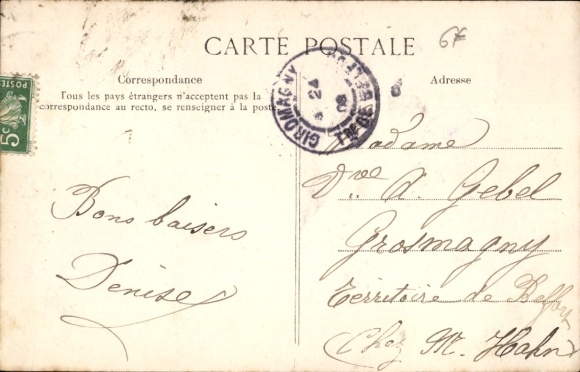 CARTE POSTALE
6F
Correspondance
Adresse
Tous les pays étrangers n'acceptent pas la
correspondance au recto, se renseigner à la poste
POSTES
5c
GIROMAGNY
24
08
6
Bons baisers
Denise
Madame
Dve A. Gebel
Grosmagny
Territoire de Belfort
Chez M. Hahn